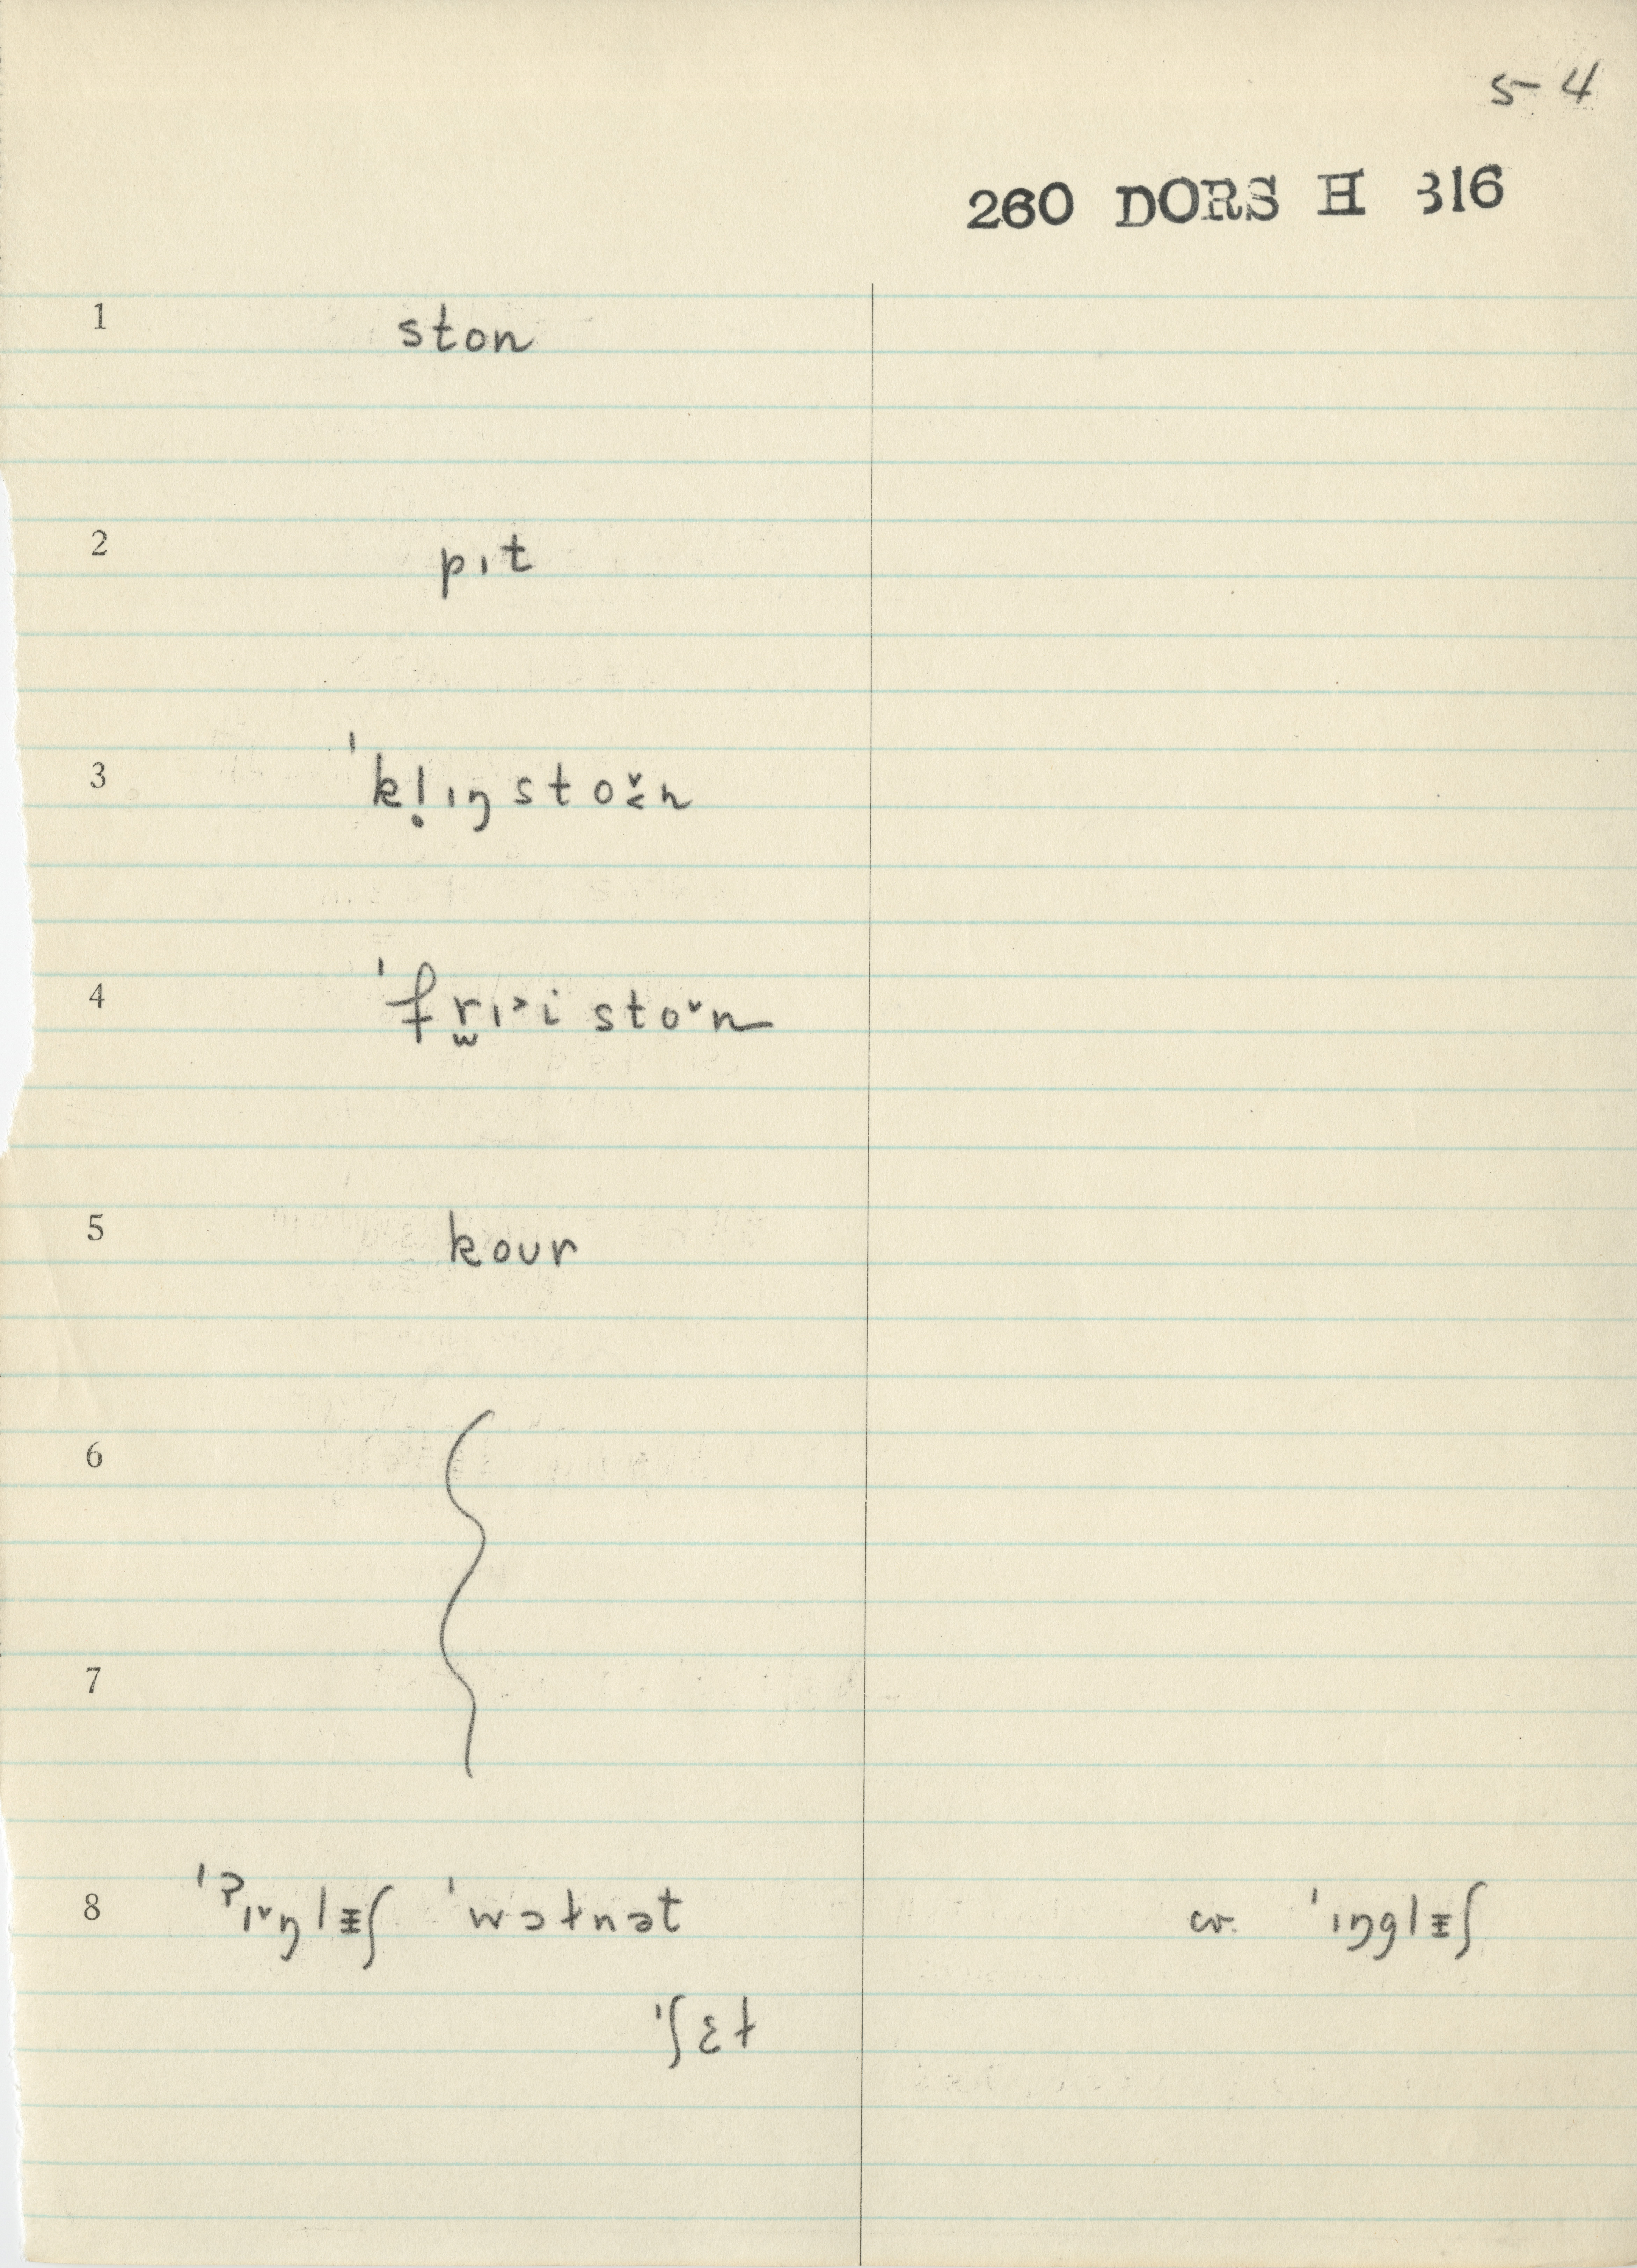 5-4
260 DORS H 316
1 ston
2 pɪt
3 ˈkḷɪŋ stoˇ˂n
4 ˈfr̫ɪ˃i stoˇn
5 kour
6
7
8 ˈʔɪˇŋlᵻʃ ˈwɔɫnət cr. ˈɪŋglᵻʃ
ˈʃɛɫ